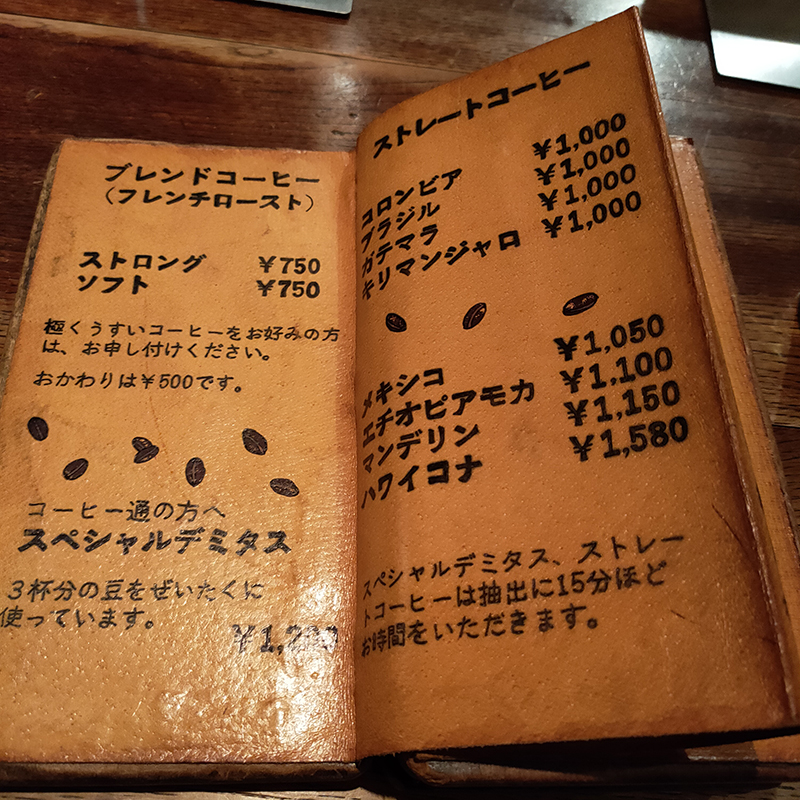 ブレンドコーヒー
(フレンチロースト)
ストロング ¥750
ソフト ¥750
極くうすいコーヒーをお好みの方
は、お申し付けください。
おかわりは¥500です。
コーヒー通の方へ
スペシャルデミタス
3杯分の豆をぜいたくに
使っています。
ストレートコーヒー
コロンビア ¥1,000
ブラジル ¥1,000
ガテマラ ¥1,000
キリマンジャロ ¥1,000
メキシコ ¥1,050
エチオピアモカ ¥1,100
マンデリン ¥1,150
ハワイコナ ¥1,580
スペシャルデミタス、ストレー
トコーヒーは抽出に15分ほど
お時間をいただきます。